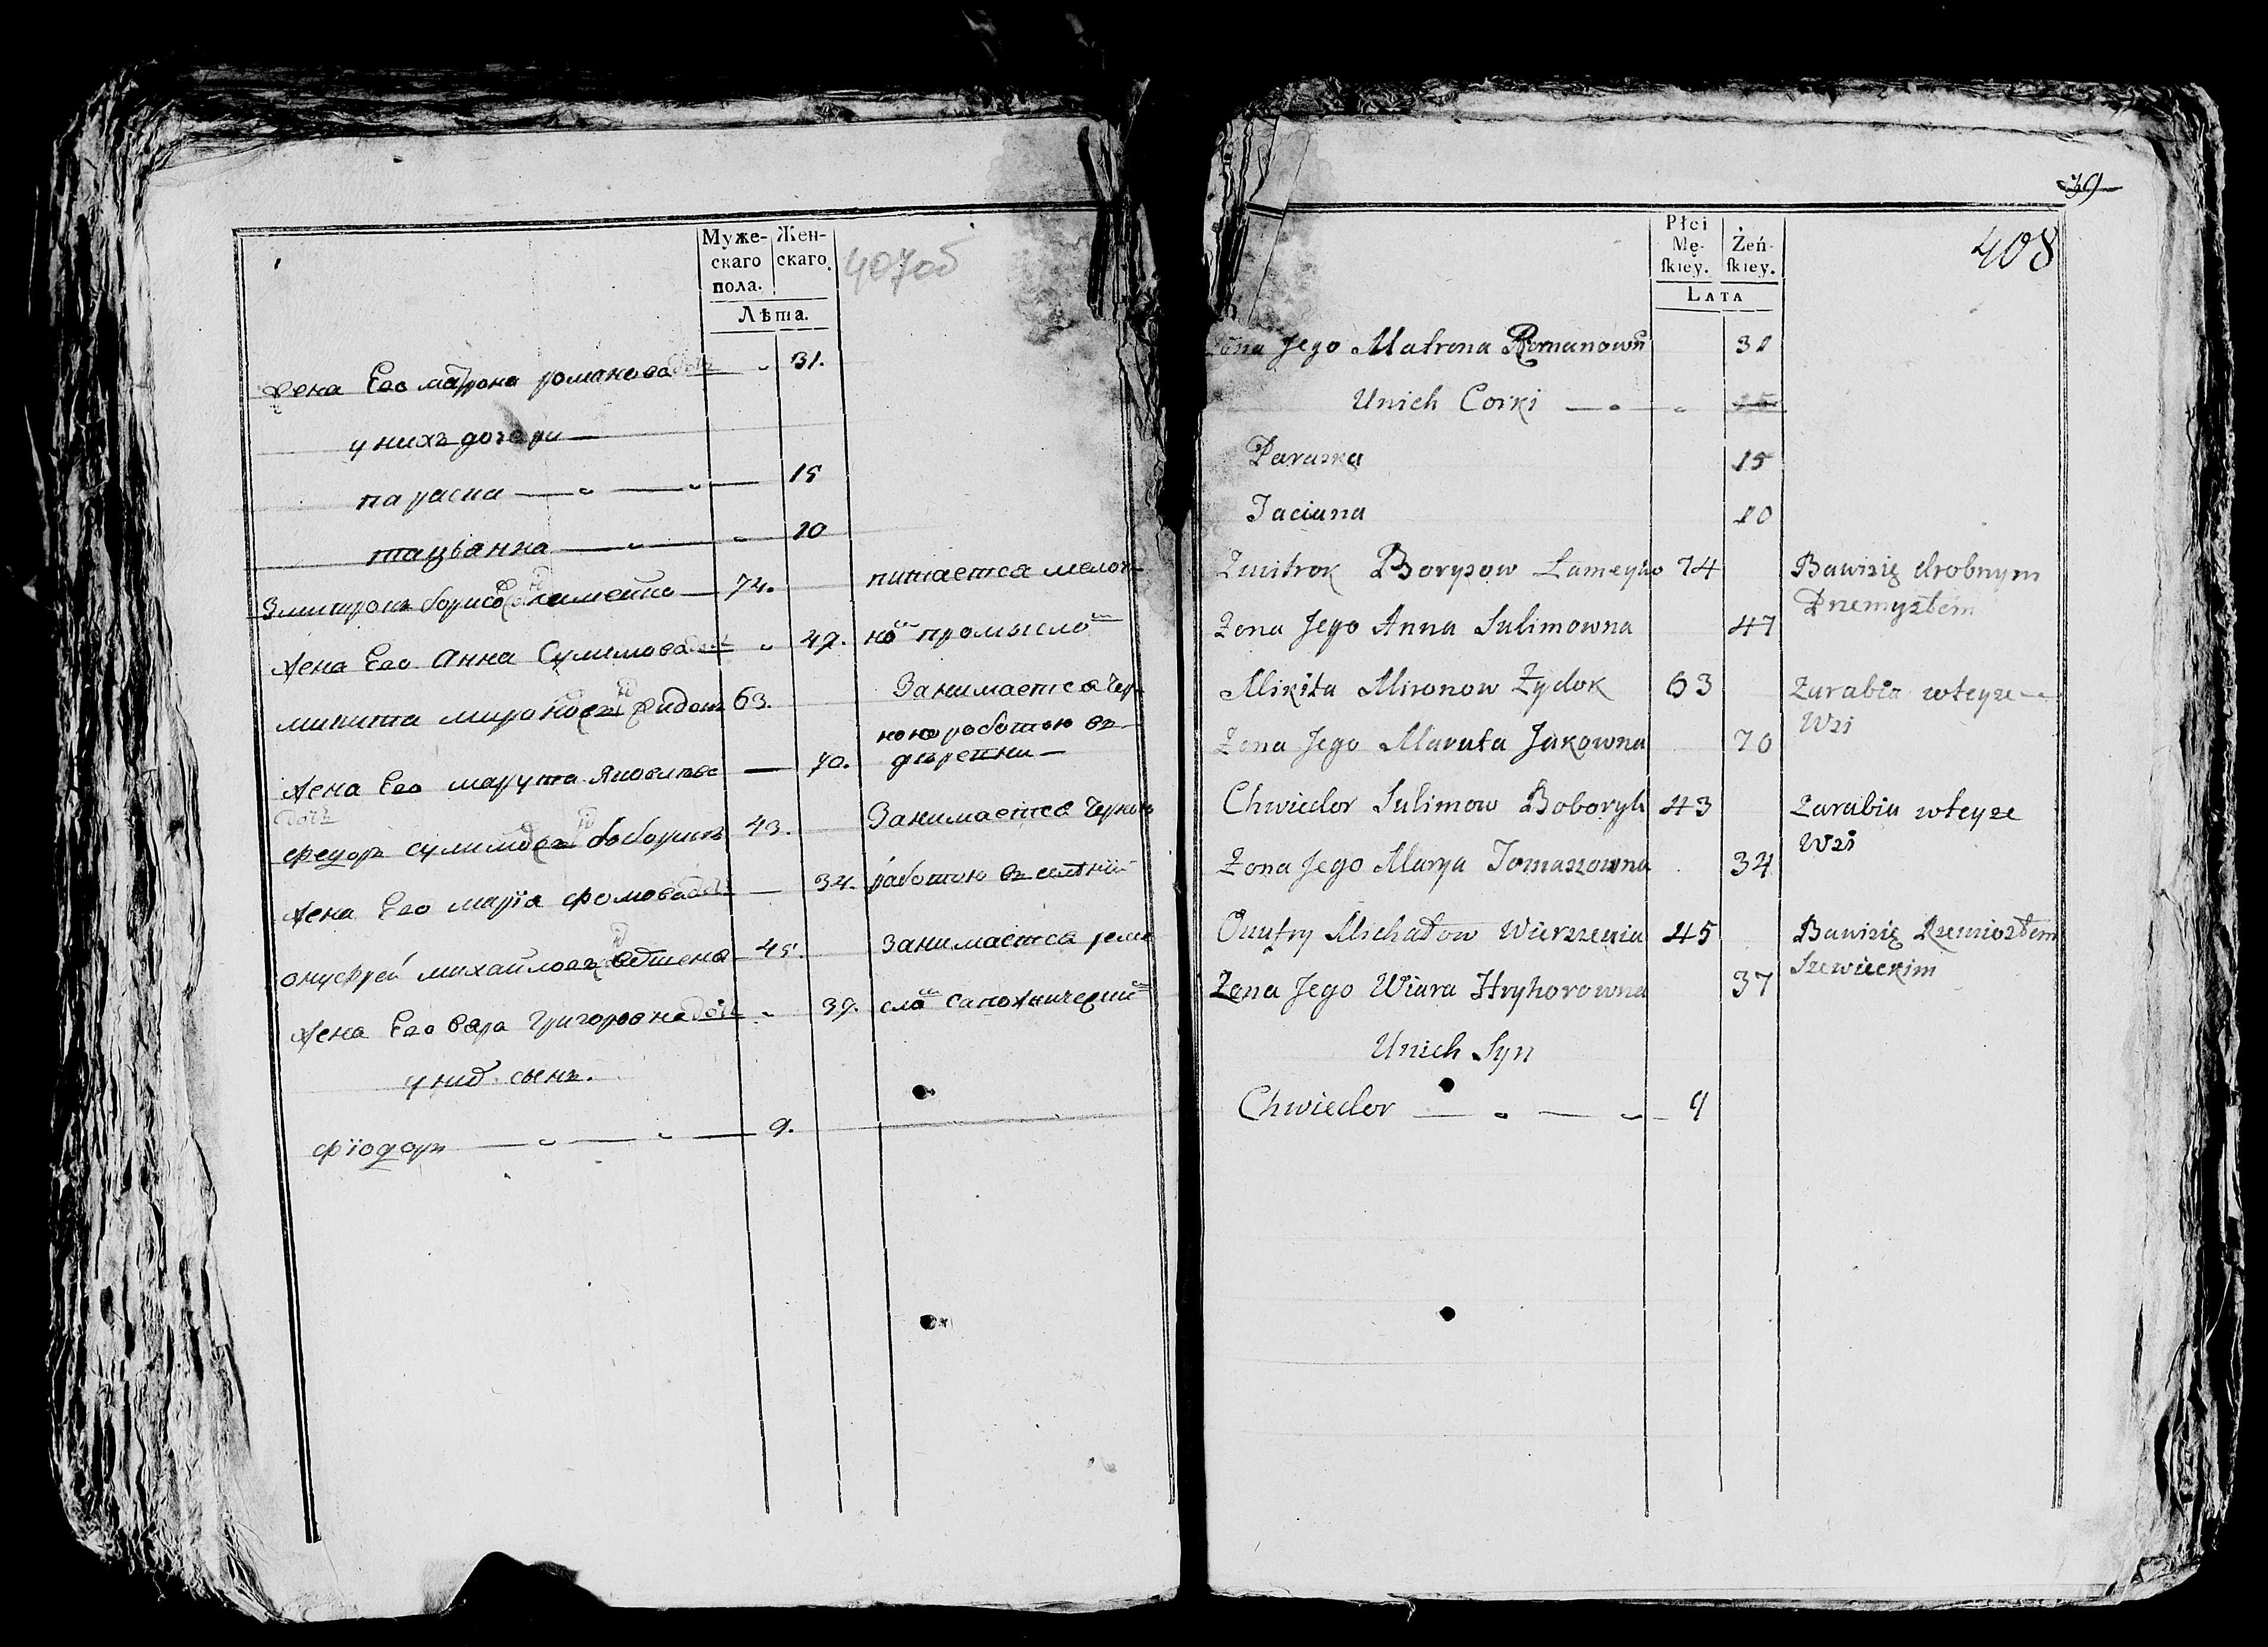 Муже-
скаго
пола.
Жен-
скаго.
Лѣта.
407об
жена Его матрона романова дочь 31.
у нихъ дочери
параска 15
тацьянна 10
Змитрокъ борисовъ ламейко 74. питается мелоч-
жена Его Анна Сулимова дочь 47. ной промыслом
микита мироновъ жидокъ 63. Занимается чер-
ною работою въ
жена Его марута яковлева 70. деревни
дочь
федоръ сулимовъ боборикъ 43. Занимается черною
жена Его марія фомова дочь 34. работою въ
онуфрей михайловъ 45. занимается реме
жена Его вера григоровна дочь 37. слом сапожническим
у них сынъ.
фіодоръ 9.
39
408
Płci
Mę-
skiey.
Żeń-
skiey.
LATA
Żona Jego Matrona Romanown 31
Unich Corki 15
Paraska 15
Taciana 10
Zmitrok Borysow Lameyko 74 Bawisię drobnym
Przemysłem
Zona Jego Anna Sulimowna 47
Mikita Mironow Zydok 63 Zarabia wteyze
Wsi
Zona Jego Maruta Jakowna 70
Chwiedor Sulimow Boboryk 43 Zarabia wteyze
Wsi
Zona Jego Marya Tomaszowna 34
Onufry Michałow 45 Bawisię Rzemiosłem
Szewieckim
Zona Jego Wiara Hryhorowna 37
Unich Syn
Chwiedor 9